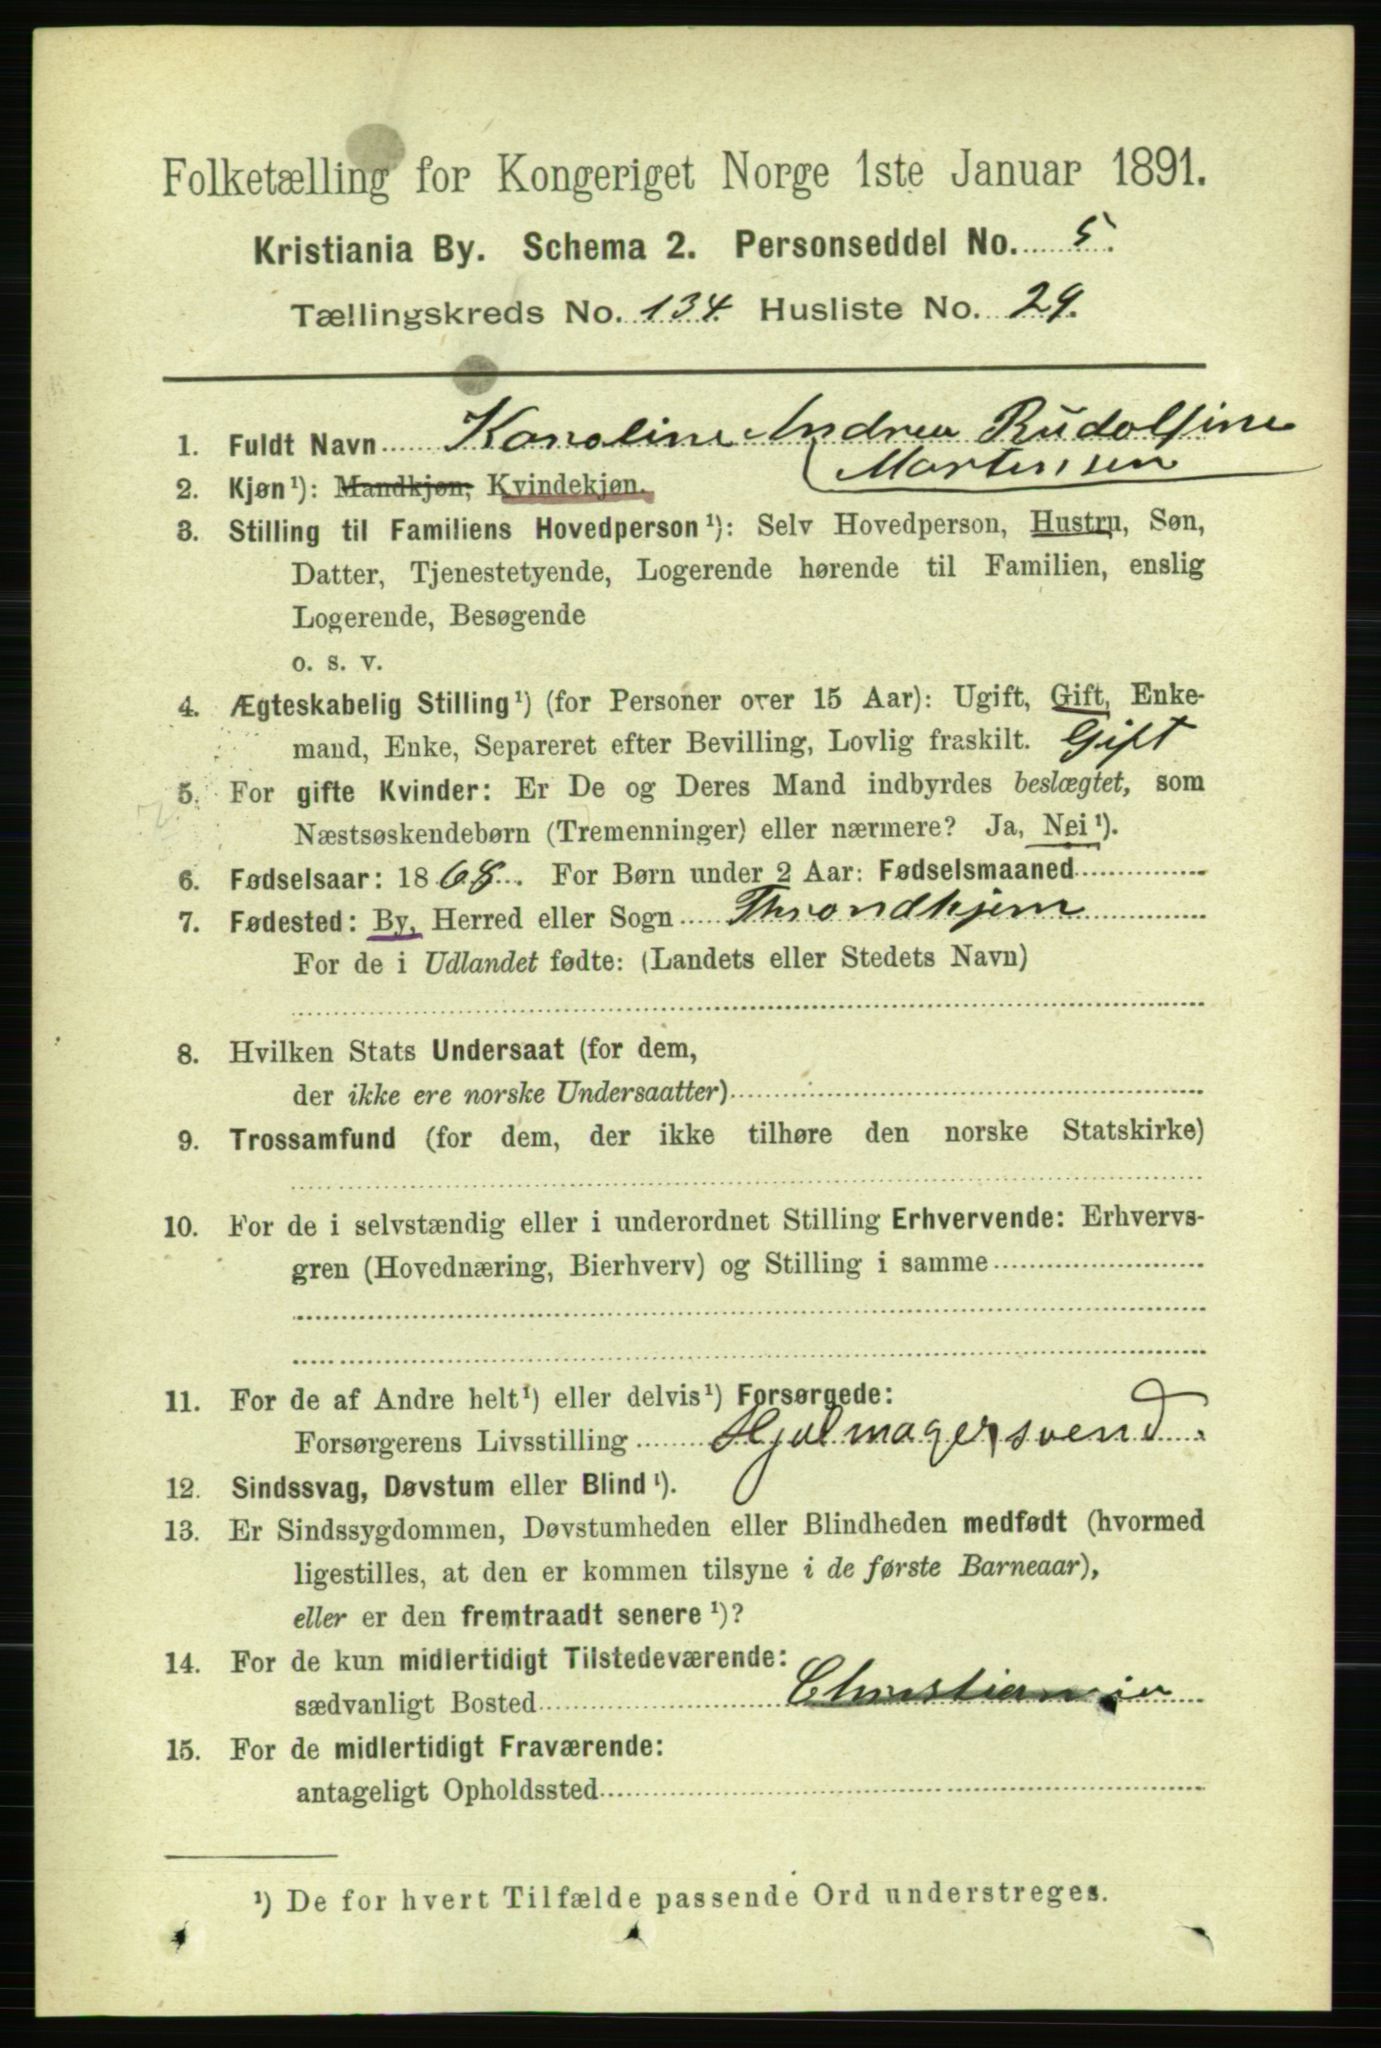 Folketælling for Kongeriget Norge 1ste Januar 1891.
Kristiania By. Schema 2. Personseddel No. 5.
Tællingskreds No. 134. Husliste No. 29.
1. Fuldt Navn Karoline Andrea Rudolfine
Martensen
2. Kjøn¹): Mandkjøn, Kvindekjøn.
3. Stilling til Familiens Hovedperson¹): Selv Hovedperson, Hustru, Søn,
Datter, Tjenestetyende, Logerende hørende til Familien, enslig
Logerende, Besøgende
o. s. v.
4. Ægteskabelig Stilling¹) (for Personer over 15 Aar): Ugift, Gift, Enke-
mand, Enke, Separeret efter Bevilling, Lovlig fraskilt. Gift
5. For gifte Kvinder: Er De og Deres Mand indbyrdes beslægtet, som
Næstsøskendebørn (Tremenninger) eller nærmere? Ja, Nei¹).
6. Fødselsaar: 1868. For Børn under 2 Aar: Fødselsmaaned
7. Fødested: By, Herred eller Sogn Throndhjem
For de i Udlandet fødte: (Landets eller Stedets Navn)
8. Hvilken Stats Undersaat (for dem,
der ikke ere norske Undersaatter)
9. Trossamfund (for dem, der ikke tilhøre den norske Statskirke)
10. For de i selvstændig eller i underordnet Stilling Erhvervende: Erhvervs-
gren (Hovednæring, Bierhverv) og Stilling i samme
11. For de af Andre helt¹) eller delvis¹) Forsørgede:
Forsørgerens Livsstilling Hjulmagersvend
12. Sindssvag, Døvstum eller Blind¹).
13. Er Sindssygdommen, Døvstumheden eller Blindheden medfødt (hvormed
ligestilles, at den er kommen tilsyne i de første Barneaar),
eller er den fremtraadt senere¹)?
14. For de kun midlertidigt Tilstedeværende:
sædvanligt Bosted Christiania
15. For de midlertidigt Fraværende:
antageligt Opholdssted
¹) De for hvert Tilfælde passende Ord understreges.